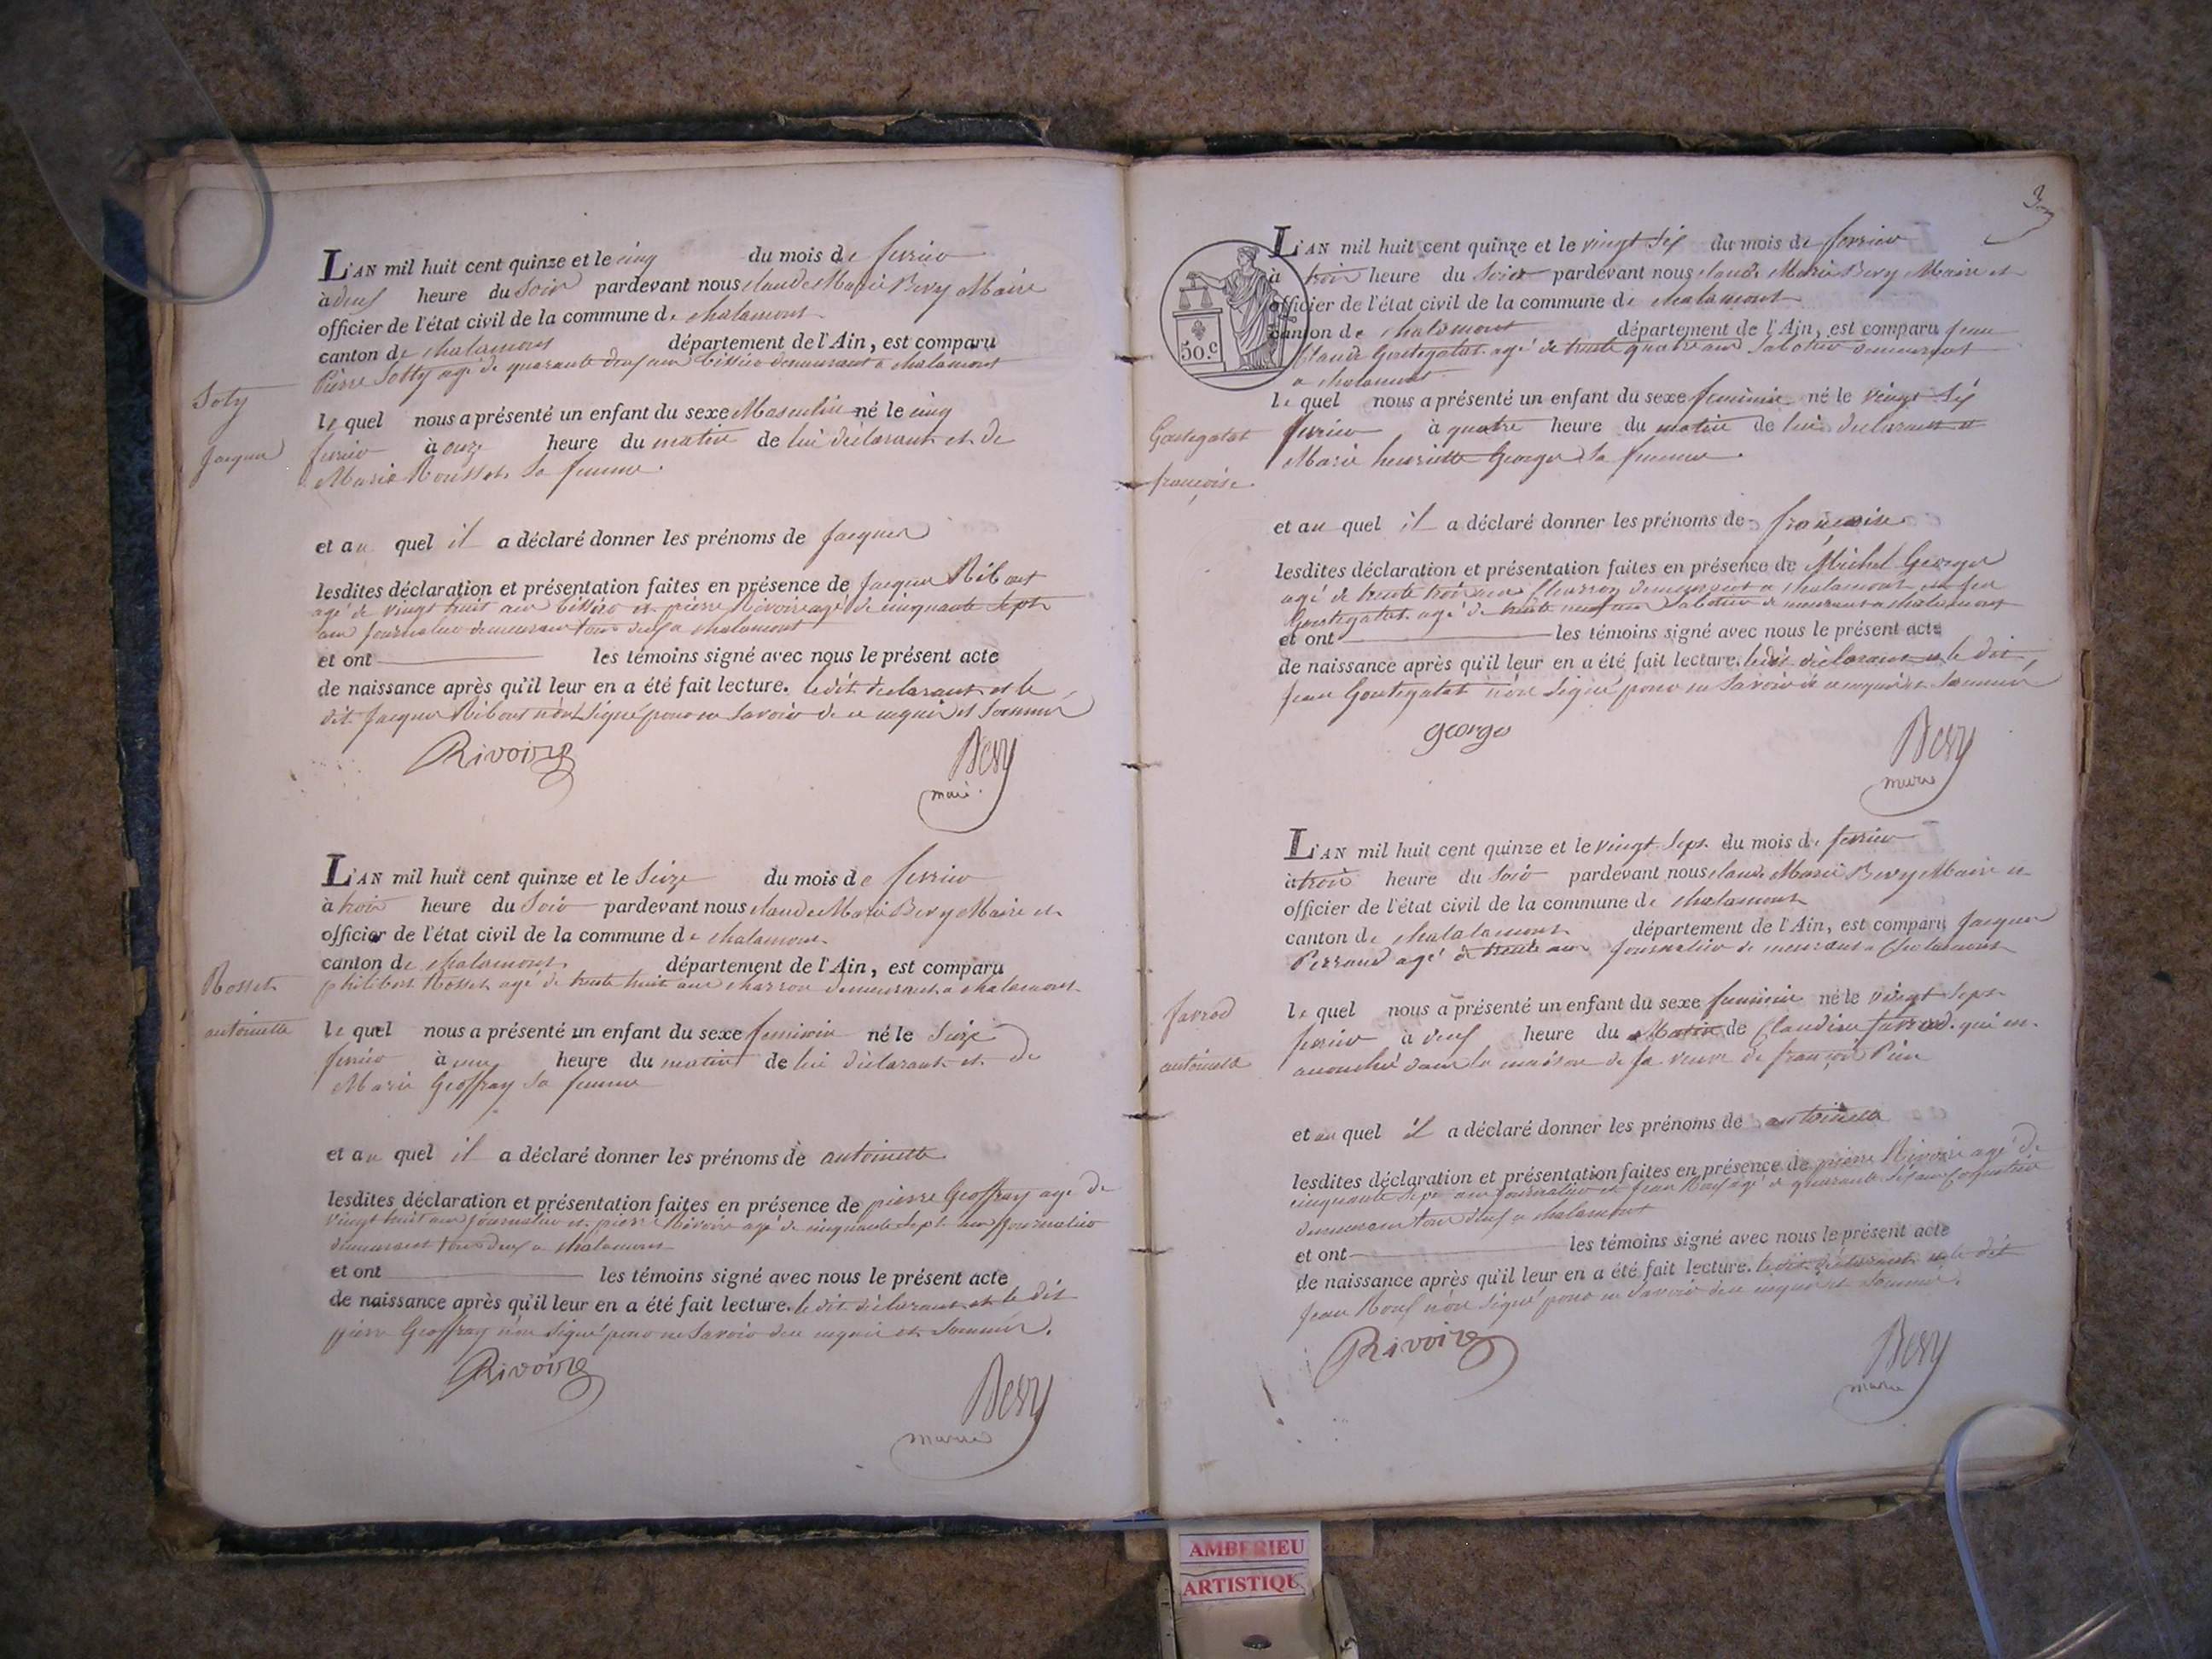 L'AN mil huit cent quinze et le cinq du mois de fevrier
à deux heure du Soir pardevant nous Claude Marie Bevy Maire
officier de l'état civil de la commune de chalamont
canton de chalamont département de l'Ain, est comparu
Pierre Sotty agé de quarante deux ans demeurant a chalamont
Soty
Jacques
le quel nous a présenté un enfant du sexe Masculin né le cinq
fevrier à onze heure du matin de lui déclarant et de
Marie Rousset sa femme.
et au quel il a déclaré donner les prénoms de Jacques
lesdites déclaration et présentation faites en présence de Jacques Ribout
agé de vingt huit ans et pierre Rivoire agé de cinquante sept
ans journalier demeurant tous deux a chalamont
et ont les témoins signé avec nous le présent acte
de naissance après qu'il leur en a été fait lecture. le dit declarant et le
dit Jacques Ribout n'ont signé pour ne savoir de ce requis et sommés
Rivoire Bevy
maire
L'AN mil huit cent quinze et le Seize du mois de fevrier
à trois heure du Soir pardevant nous Claude Marie Bevy Maire et
officier de l'état civil de la commune de chalamont
canton de chalamont département de l'Ain, est comparu
philibert Rosset agé de trente huit ans charron demeurant a chalamont
Rosset
antoinette
le quel nous a présenté un enfant du sexe feminin né le Seize
fevrier à une heure du matin de lui déclarant et de
Marie Geoffray sa femme
et au quel il a déclaré donner les prénoms de antoinette
lesdites déclaration et présentation faites en présence de pierre Geoffray agé de
vingt huit ans journalier et pierre Rivoire agé de cinquante sept ans journalier
demeurant tous deux a chalamont
et ont les témoins signé avec nous le présent acte
de naissance après qu'il leur en a été fait lecture. le dit déclarant et le dit
pierre Geoffray n'on signé pour ne savoir de ce requis et sommés.
Rivoire Bevy
maire
3
50.c
L'AN mil huit cent quinze et le vingt six du mois de fevrier
à trois heure du Soir pardevant nous Claude Marie Bevy Maire et
officier de l'état civil de la commune de chalamont
canton de chalamont département de l'Ain, est comparu Jean
Claude Goutegatat agé de trente quatre ans Sabotier demeurant
a chalamont
Goutegatat
françoise
le quel nous a présenté un enfant du sexe feminin né le vingt six
fevrier à quatre heure du matin de lui déclarant et
Marie henriette Georges sa femme.
et au quel il a déclaré donner les prénoms de françoise
lesdites déclaration et présentation faites en présence de Michel Georges
agé de trente trois ans demeurant a chalamont et Jean
Goutegatat agé de trente neuf ans Sabotier demeurant a chalamont
et ont les témoins signé avec nous le présent acte
de naissance après qu'il leur en a été fait lecture. ledit déclarant et le dit
Jean Goutegatat n'on signé pour ne savoir de ce requis et sommés
georges Bevy
maire
L'AN mil huit cent quinze et le vingt sept du mois de fevrier
à trois heure du Soir pardevant nous Claude Marie Bevy Maire et
officier de l'état civil de la commune de chalamont
canton de chalalamont département de l'Ain, est comparu Jacques
Perraud agé de trente ans journalier demeurant a Chalamont
farrod
antoinette
le quel nous a présenté un enfant du sexe feminin né le vingt sept
fevrier à deux heure du Matin de Claudine farrod. qui est
accouchée dans la maison de la veuve de françois
et au quel il a déclaré donner les prénoms de antoinette
lesdites déclaration et présentation faites en présence de pierre Rivoire agé de
cinquante sept ans journalier et Jean Roux agé de quarante six ans
demeurant tous deux a chalamont
et ont les témoins signé avec nous le présent acte
de naissance après qu'il leur en a été fait lecture. le dit déclarant et le dit
Jean Roux n'on signé pour ne savoir de ce requis et sommés.
Rivoire Bevy
maire
AMBERIEU
ARTISTIQUE